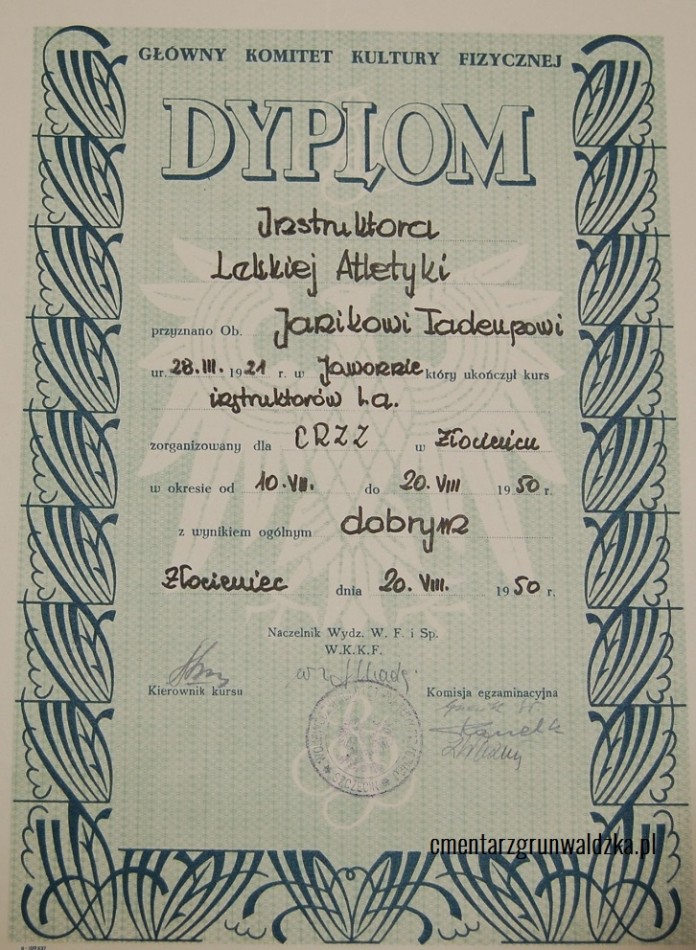 GŁÓWNY KOMITET KULTURY FIZYCZNEJ
DYPLOM
Instruktora
Lekkiej Atletyki
przyznano Ob. Janikowi Tadeuszowi
ur. 28.III. 1921 r. w Jaworznie który ukończył kurs
instruktorów l.a.
zorganizowany dla CRZZ w Złocieńcu
w okresie od 10.VII. do 20.VIII 1950 r.
z wynikiem ogólnym dobrym
Złocieniec dnia 20.VIII. 1950 r.
Naczelnik Wydz. W. F. i Sp.
W.K.K.F.
Kierownik kursu
Komisja egzaminacyjna
cmentarzgrunwaldzka.pl